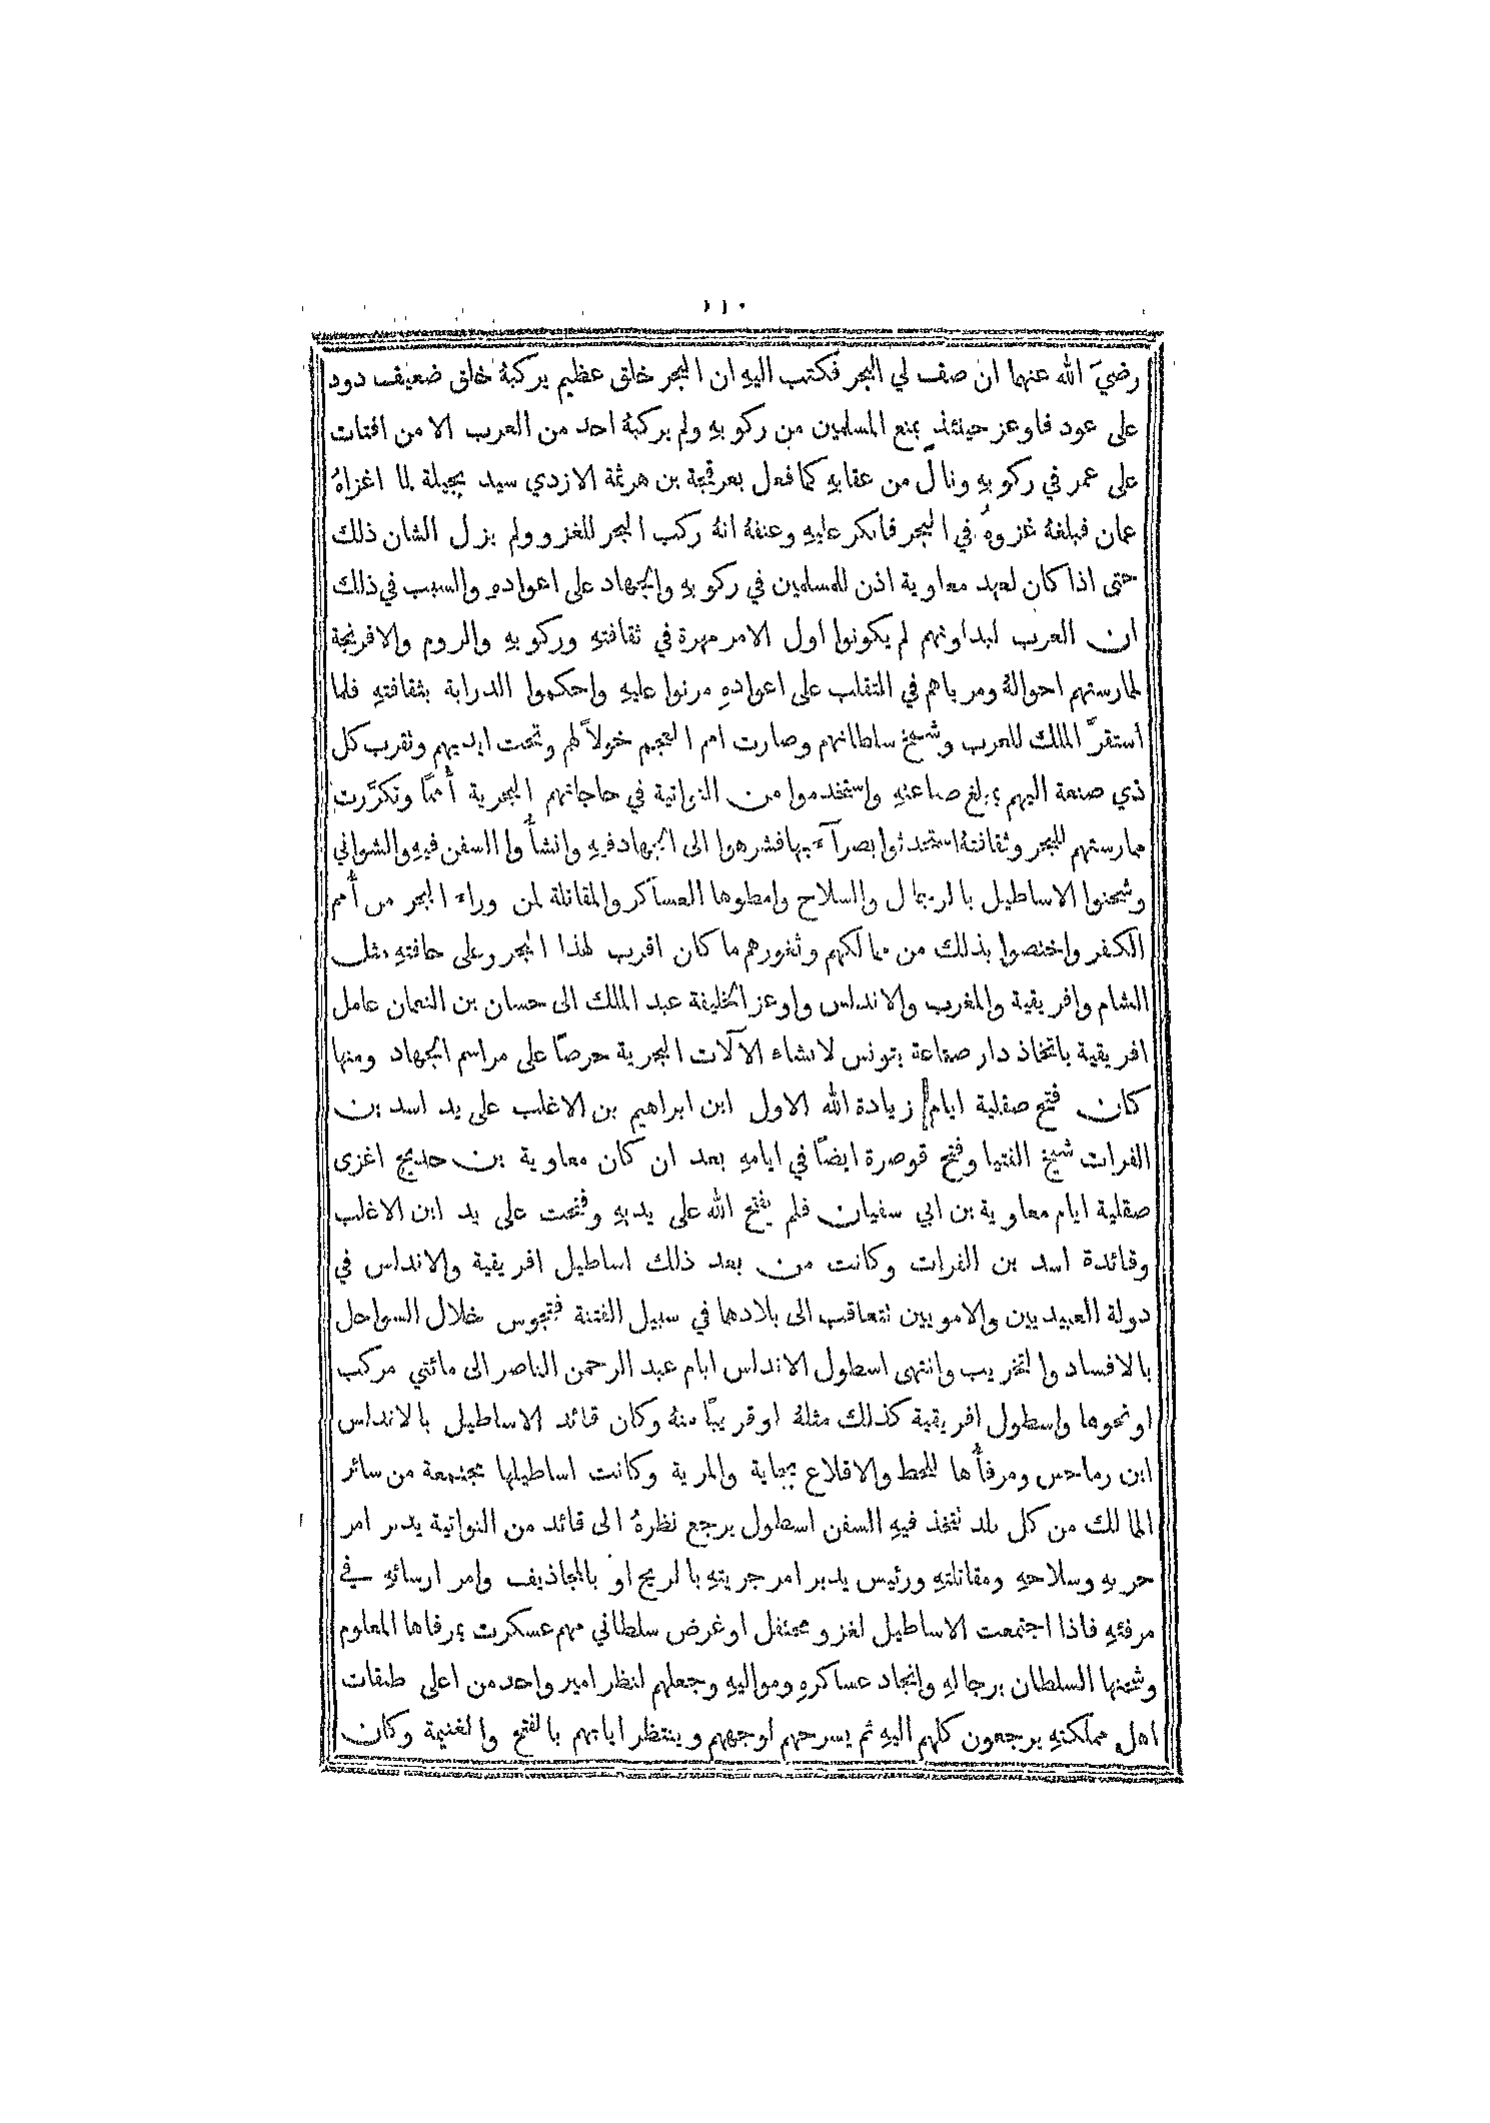 رضيَ الله عنهما ان صف لي البحر فكتب اليهِ ان البحر خلق عظيم يركبهُ خلق ضعيف دود
على عود فاوعز حينئذٍ بمنع المسلمين من ركوبهِ ولم يركبهُ احد من العرب الا من افتات
على عمر في ركوبهِ ونال من عقابهِ كما فعل بعرفجة بن هرثمة الازدي سيد بجيلة لما اغزاهُ
عمان فبلغهُ غزوهُ في البحر فانكر عليهِ وعنفهُ انهُ ركب البحر للغزو ولم يزل الشان ذلك
حتى اذا كان لعهد معاوية اذن للمسلمين في ركوبهِ والجهاد على اعوادهِ والسبب في ذلك
ان العرب لبداوتهم لم يكونوا اول الامر مهرة في ثقافتهِ وركوبهِ والروم والافرنجة
لممارستهم احوالهُ ومرباهم في التقلب على اعوادهِ مرنوا عليهِ واحكموا الدراية بثقافتهِ فلما
استقرّ الملك للعرب وشمخ سلطانهم وصارت امم العجم خولاً لهم وتحت ايديهم وتقرب كل
ذي صنعة اليهم بمبلغ صناعتهِ واستخدموا من النواتية في حاجاتهم البحرية أُممًا وتكرّرت
ممارستهم للبحر وثقافتهُ استحدثوا بصرآء بها فشرهوا الى الجهاد فيهِ وانشأُوا السفن فيهِ والشواني
وشحنوا الاساطيل بالرجال والسلاح وامطوها العساكر والمقاتلة لمن وراء البحر من أُمم
الكفر واختصوا بذلك من ممالكهم وثغورهم ما كان اقرب لهذا البحر وعلى حافتهِ مثل
الشام وافريقية والمغرب والاندلس واوعز الخليفة عبد الملك الى حسان بن النعمان عامل
افريقية باتخاذ دار صناعة بتونس لانشاء الآلات البحرية حرصًا على مراسم الجهاد ومنها
كان فتح صقلية ايام زيادة الله الاول ابن ابراهيم بن الاغلب على يد اسد بن
الفرات شيخ الفتيا وفتح قوصرة ايضًا في ايامهِ بعد ان كان معاوية بن حديج اغزى
صقلية ايام معاوية بن ابي سفيان فلم يفتح الله على يديهِ وفتحت على يد ابن الاغلب
وقائدة اسد بن الفرات وكانت من بعد ذلك اساطيل افريقية والاندلس في
دولة العبيديين والامويين تتعاقب الى بلادهما في سبيل الفتنة فتجوس خلال السواحل
بالافساد والتخريب وانتهى اسطول الاندلس ايام عبد الرحمن الناصر الى مائتي مركب
او نحوها واسطول افريقية كذلك مثلهُ او قريبًا منهُ وكان قائد الاساطيل بالاندلس
ابن رماحس ومرفأُها للحط والاقلاع بجاية والمرية وكانت اساطيلها مجتمعة من سائر
الممالك من كل بلد تتخذ فيهِ السفن اسطول يرجع نظرهُ الى قائد من النواتية يدبر امر
حربهِ وسلاحهِ ومقاتلتهِ ورئيس يدبر امر جريتهِ بالريح او بالمجاذيف وامر ارسائهِ في
مرفئهِ فاذا اجتمعت الاساطيل لغزو محتفل او غرض سلطاني مهم عسكرت بمرفاها المعلوم
وشحنها السلطان برجالهِ وانجاد عساكرهِ ومواليهِ وجعلهم لنظر امير واحد من اعلى طبقات
اهل مملكتهِ يرجعون كلهم اليهِ ثم يسرحهم لوجههم وينتظر ايابهم بالفتح والغنيمة وكان